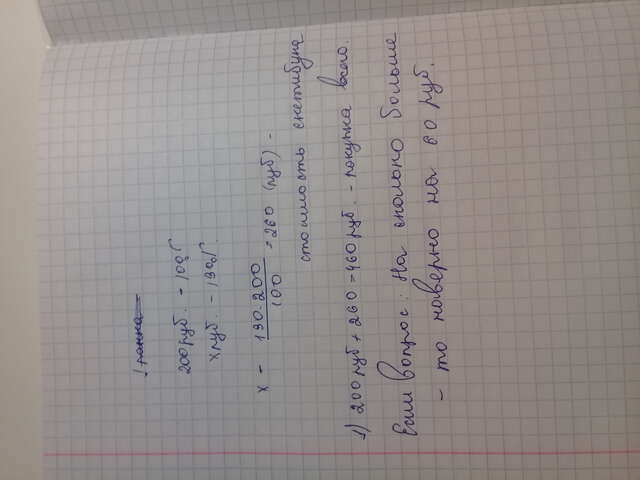 200 руб. - 100%
x руб. - 130%
x = 130·200 / 100 = 260 (руб) -
стоимость скетчбука
1) 200 руб + 260 = 460 руб. - покупка всего
Если вопрос: На сколько больше
- то наверно на 60 руб.